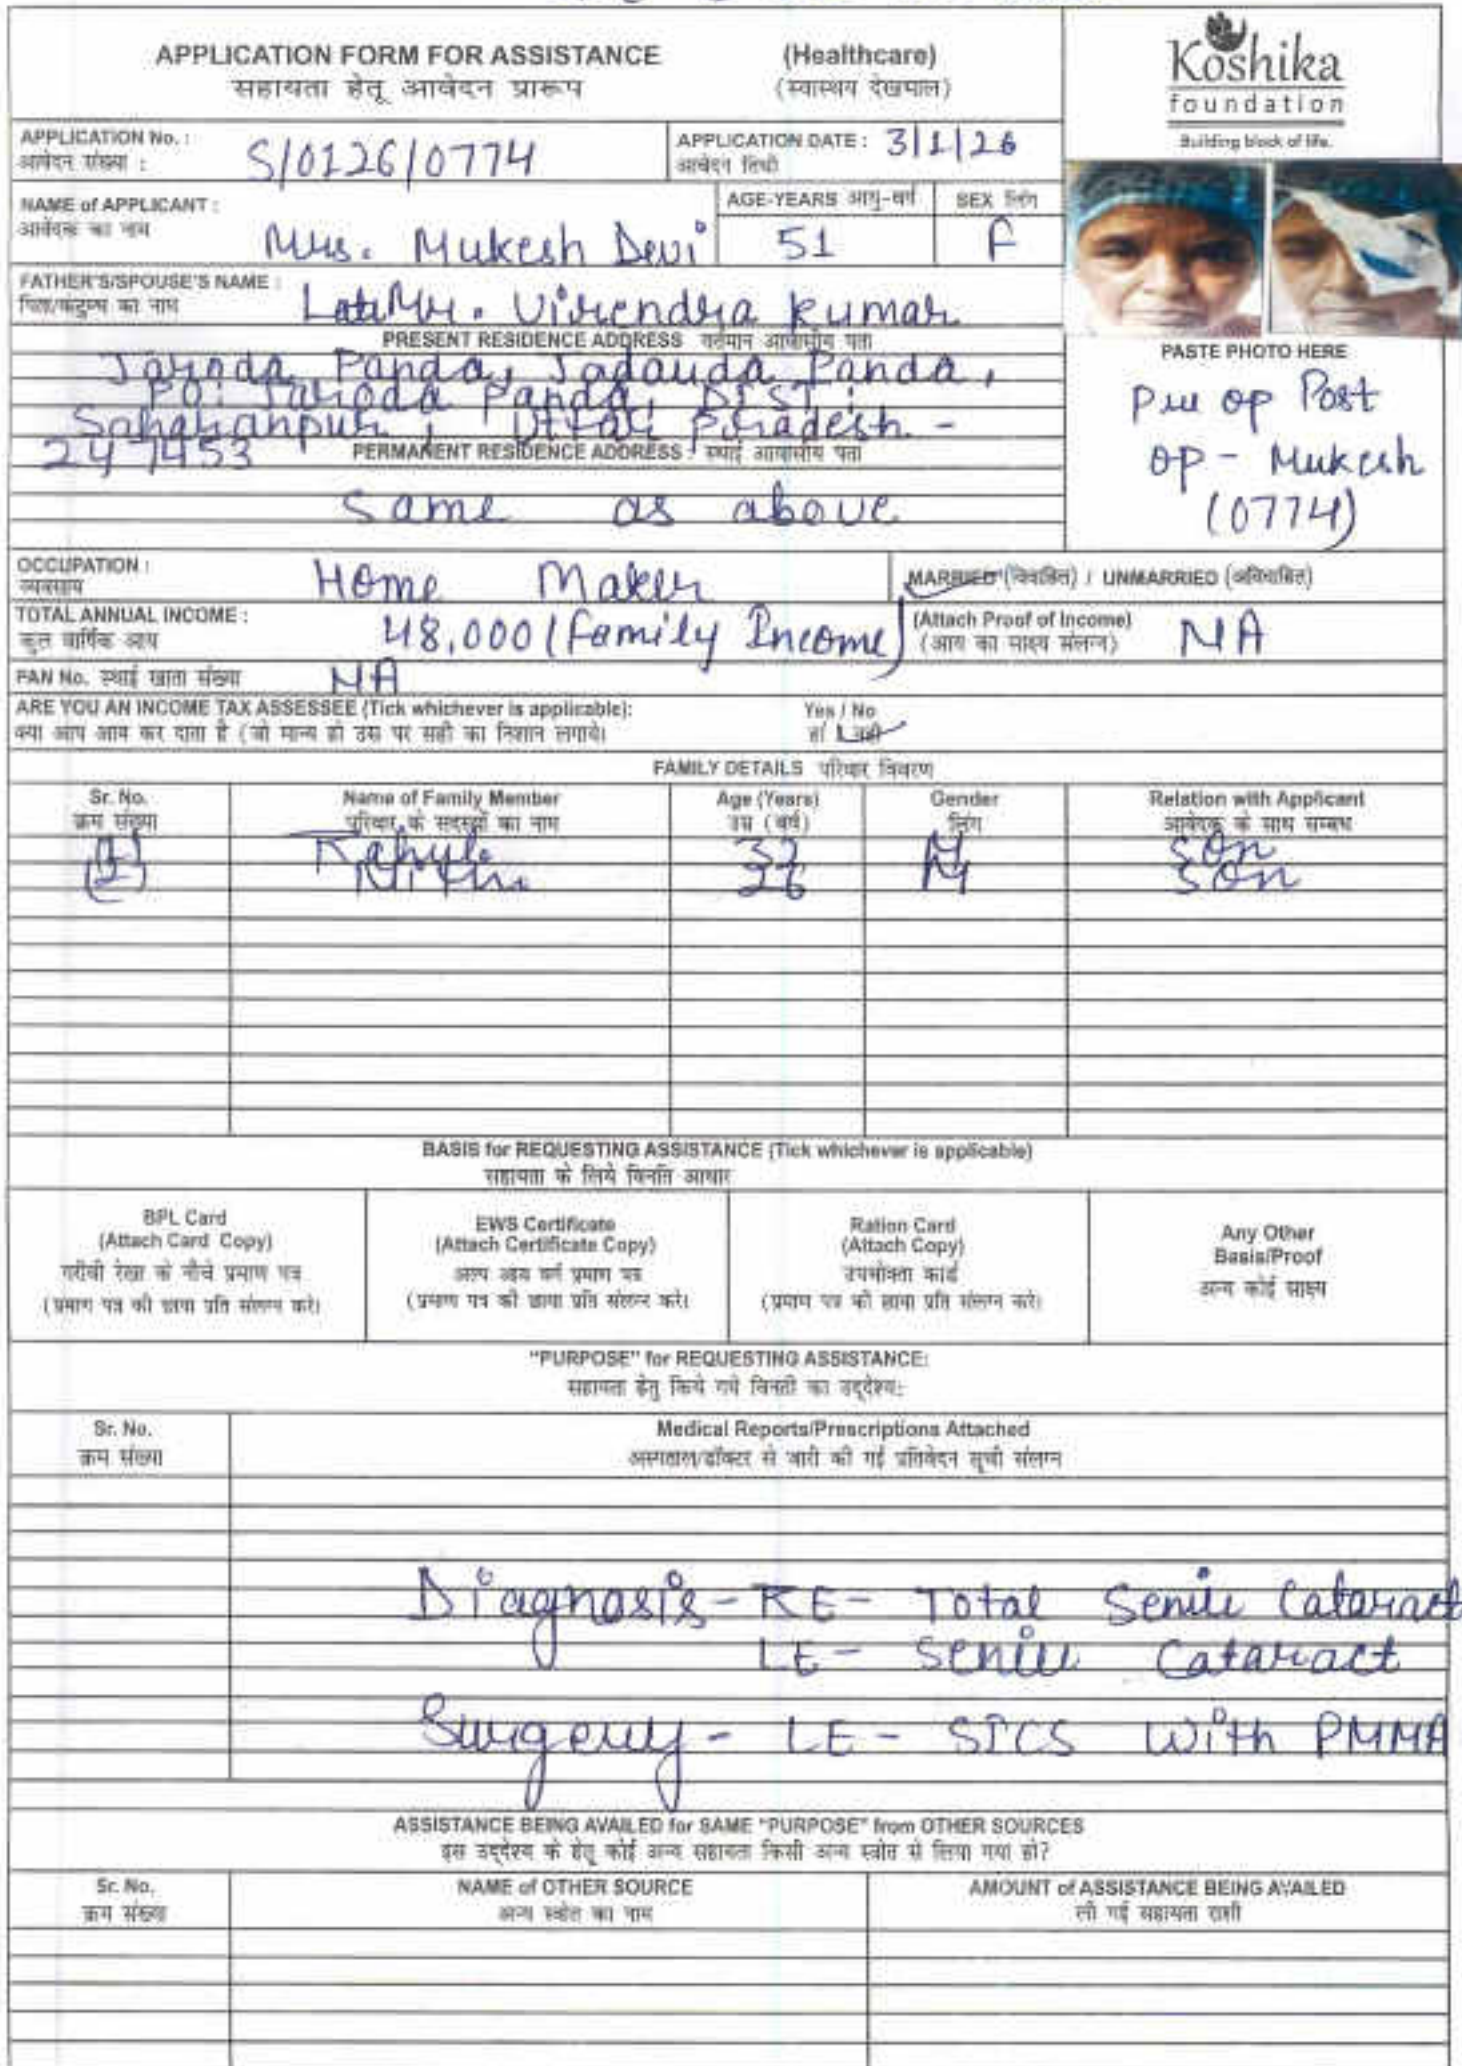 APPLICATION FORM FOR ASSISTANCE (Healthcare)
सहायता हेतू आवेदन प्रारूप (स्वास्थय देखभाल)
Koshika
foundation
Building block of life.
APPLICATION No. : S/0126/0774 APPLICATION DATE : 3/1/26
आवेदन संख्या : आवेदन तिथी
NAME of APPLICANT : Mrs. Mukesh Devi AGE-YEARS आयु-वर्ष 51 SEX लिंग F
आवेदक का नाम
FATHER'S/SPOUSE'S NAME : Late Mr. Virendra Kumar
पिता/कटुम्ब का नाम
PRESENT RESIDENCE ADDRESS वर्तमान आवासीय पता
Jaroda Panda, Jadauda Panda,
PO: Jaroda Panda, DIST:
Saharanpur, Uttar Pradesh -
247453
PERMANENT RESIDENCE ADDRESS : स्थाई आवासीय पता
Same as above
PASTE PHOTO HERE
Pre op Post
op - Mukesh
(0774)
OCCUPATION : Home Maker MARRIED (विवाहित) / UNMARRIED (अविवाहित)
व्यवसाय
TOTAL ANNUAL INCOME : 48,000 (Family Income) (Attach Proof of Income) NA
कुल वार्षिक आय (आय का साक्ष्य संलग्न)
PAN No. स्थाई खाता संख्या NA
ARE YOU AN INCOME TAX ASSESSEE (Tick whichever is applicable): Yes / No
क्या आप आय कर दाता है (जो मान्य हो उस पर सही का निशान लगाये। हां / नही
FAMILY DETAILS परिवार विवरण
Sr. No. Name of Family Member Age (Years) Gender Relation with Applicant
क्रम संख्या परिवार के सदस्यों का नाम उम्र (वर्ष) लिंग आवेदक के साथ सम्बध
(1) Rahul 32 M Son
(2) Nitin 26 M Son
BASIS for REQUESTING ASSISTANCE (Tick whichever is applicable)
सहायता के लिये विनति आधार
BPL Card
(Attach Card Copy)
गरीबी रेखा के नीचे प्रमाण पत्र
(प्रमाण पत्र की छाया प्रति संलग्न करे।
EWS Certificate
(Attach Certificate Copy)
अल्प आय वर्ग प्रमाण पत्र
(प्रमाण पत्र की छाया प्रति संलग्न करे।
Ration Card
(Attach Copy)
उपभोक्ता कार्ड
(प्रमाण पत्र की छाया प्रति संलग्न करे।
Any Other
Basis/Proof
अन्य कोई साक्ष्य
"PURPOSE" for REQUESTING ASSISTANCE:
सहायता हेतु किये गये विनती का उद्देश्य:
Sr. No. Medical Reports/Prescriptions Attached
क्रम संख्या अस्पताल/डॉक्टर से जारी की गई प्रतिवेदन सूची संलग्न
Diagnosis - RE - Total Senile Cataract
LE - Senile Cataract
Surgery - LE - SICS With PMMA
ASSISTANCE BEING AVAILED for SAME "PURPOSE" from OTHER SOURCES
इस उद्देश्य के हेतू कोई अन्य सहायता किसी अन्य स्त्रोत से लिया गया हो?
Sr. No. NAME of OTHER SOURCE AMOUNT of ASSISTANCE BEING AVAILED
क्रम संख्या अन्य स्त्रोत का नाम ली गई सहायता राशी